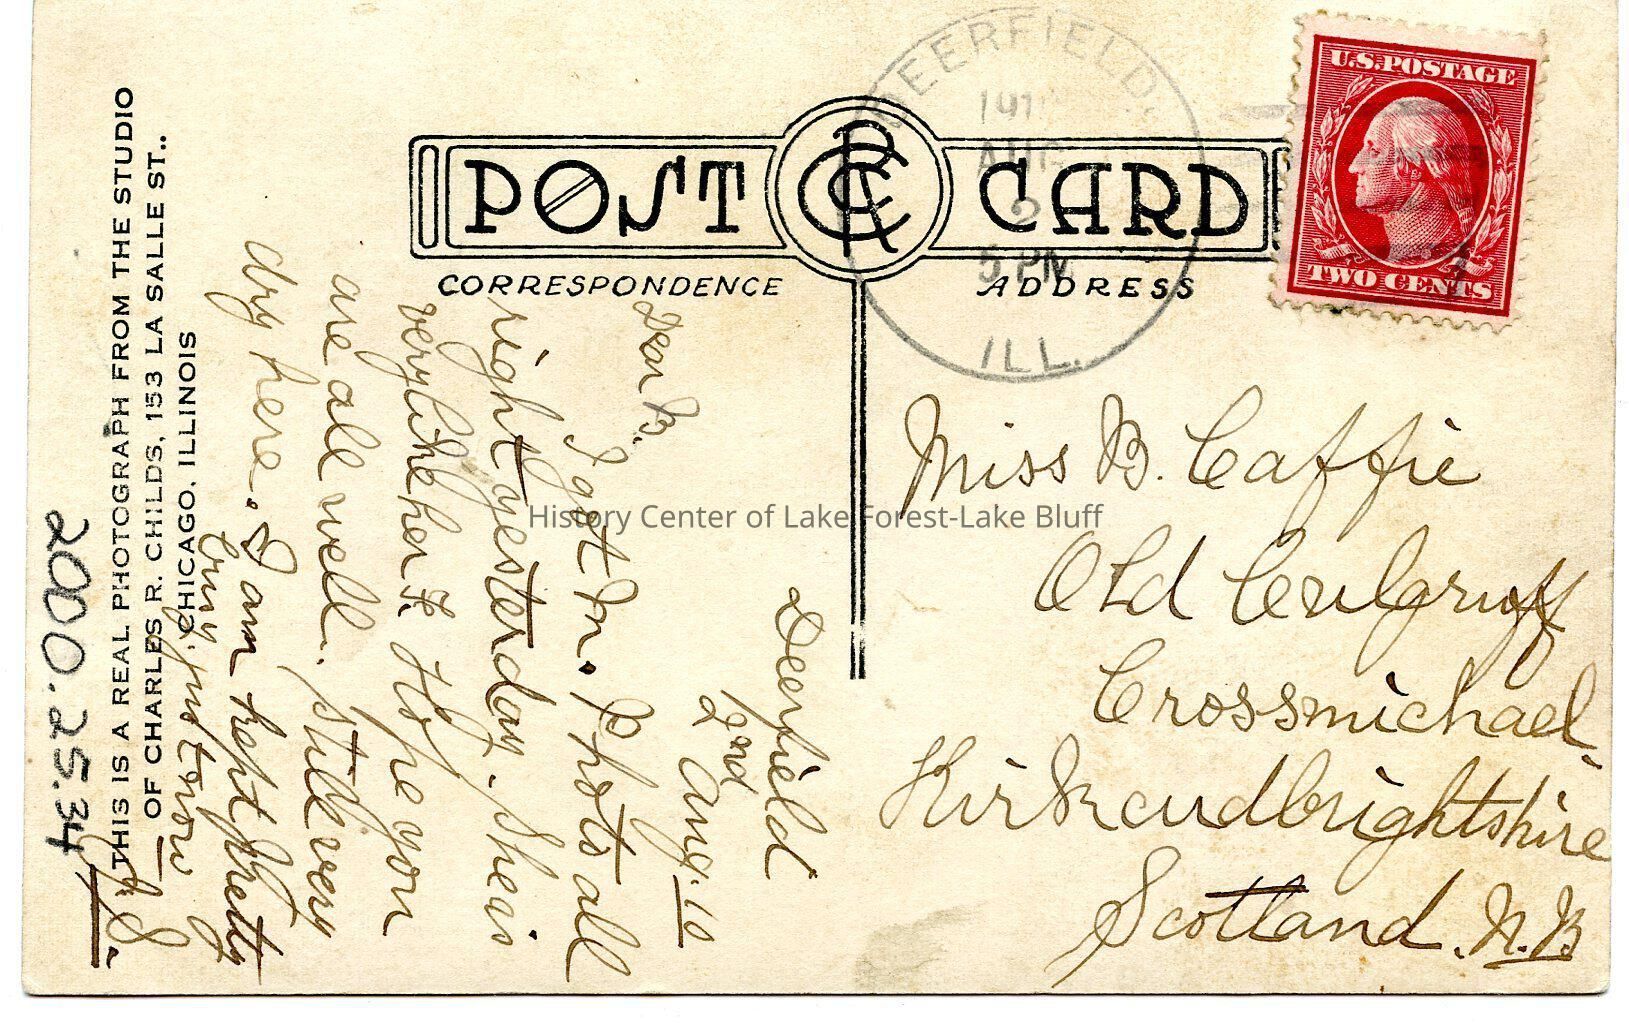 POST CARD
CRC
CORRESPONDENCE
ADDRESS
DEERFIELD,
AUG
2
5 PM
ILL.
U.S. POSTAGE
TWO CENTS
Miss B. Caffie
Old Culgruff
Crossmichael,
Kirkcudbrightshire
Scotland. N.B
Deerfield
2nd Aug. 10
Dear B.
I got Mr. Photo all
right yesterday. She is
very like her F. Hope you
are all well. Still very
dry here. I am kept pretty
busy just now
J.S.
THIS IS A REAL PHOTOGRAPH FROM THE STUDIO
OF CHARLES R. CHILDS, 153 LA SALLE ST..
CHICAGO, ILLINOIS
2000.25.34
History Center of Lake Forest-Lake Bluff